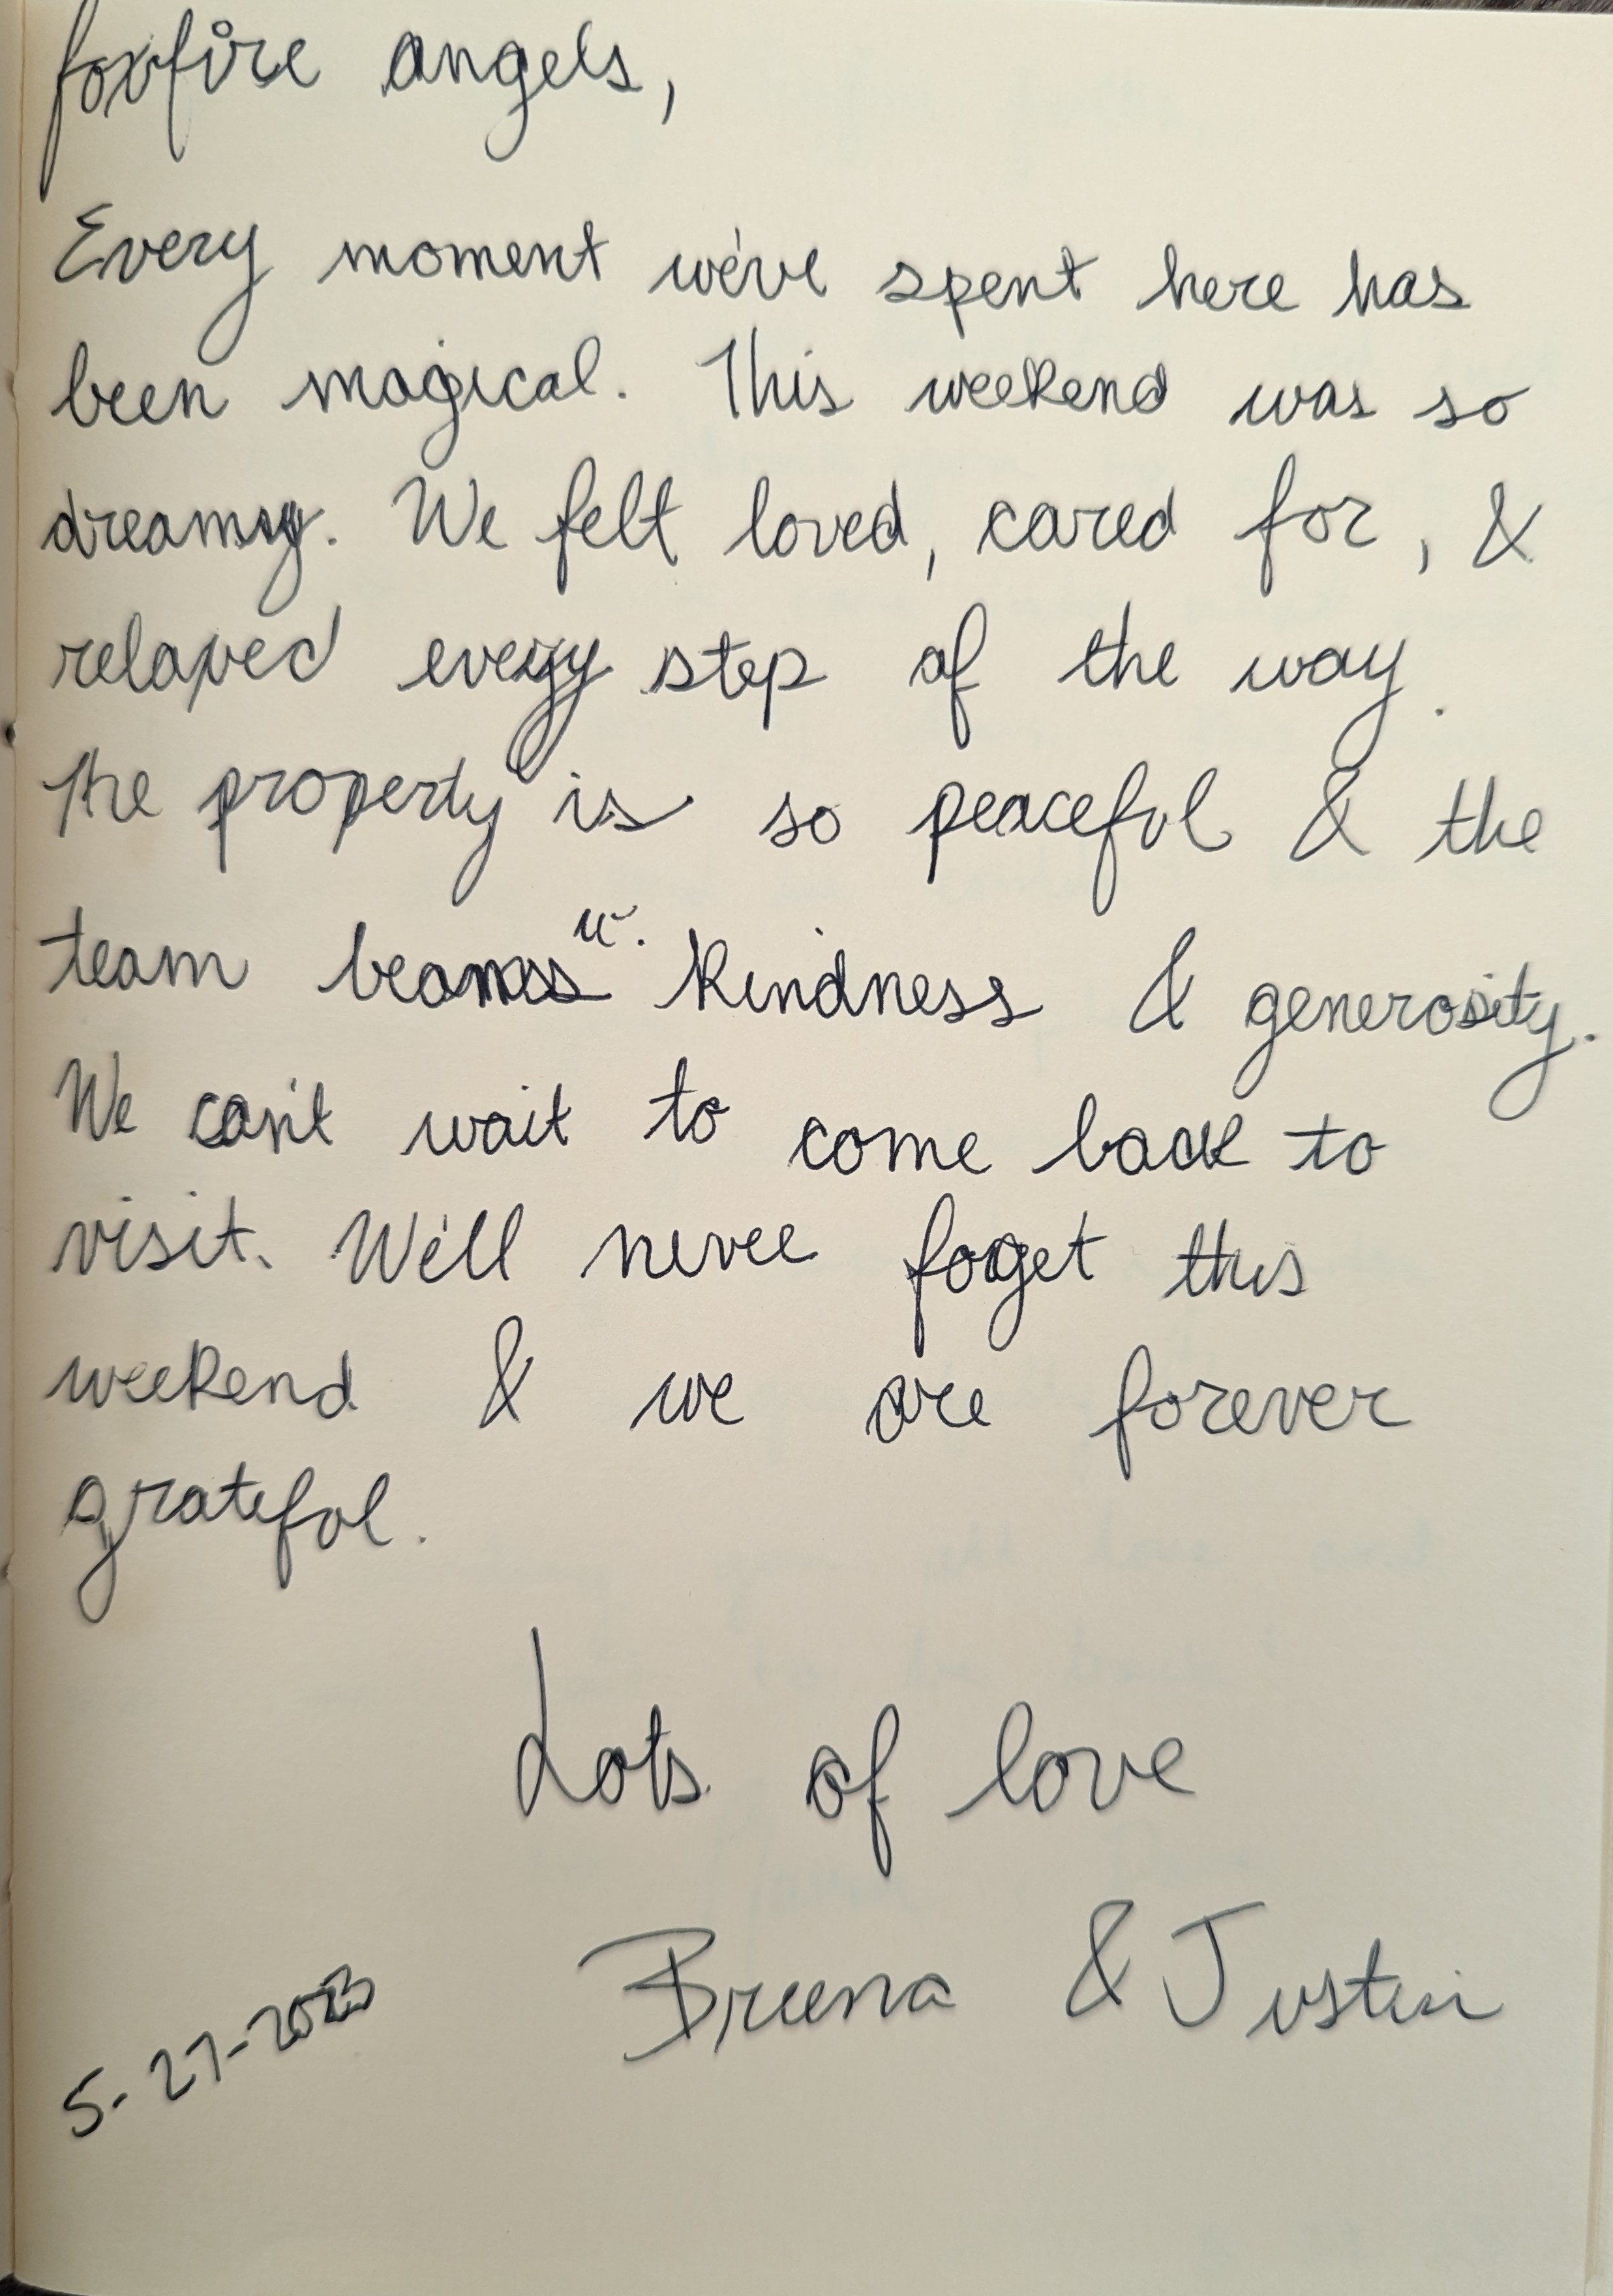 foxfire angels,
Every moment we've spent here has
been magical. This weekend was so
dreamy. We felt loved, cared for, &
relaxed every step of the way.
The property is so peaceful & the
team beams kindness & generosity.
We can't wait to come back to
visit. We'll never forget this
weekend & we are forever
grateful.
Lots of love
Bruna & Justin
5-27-2023